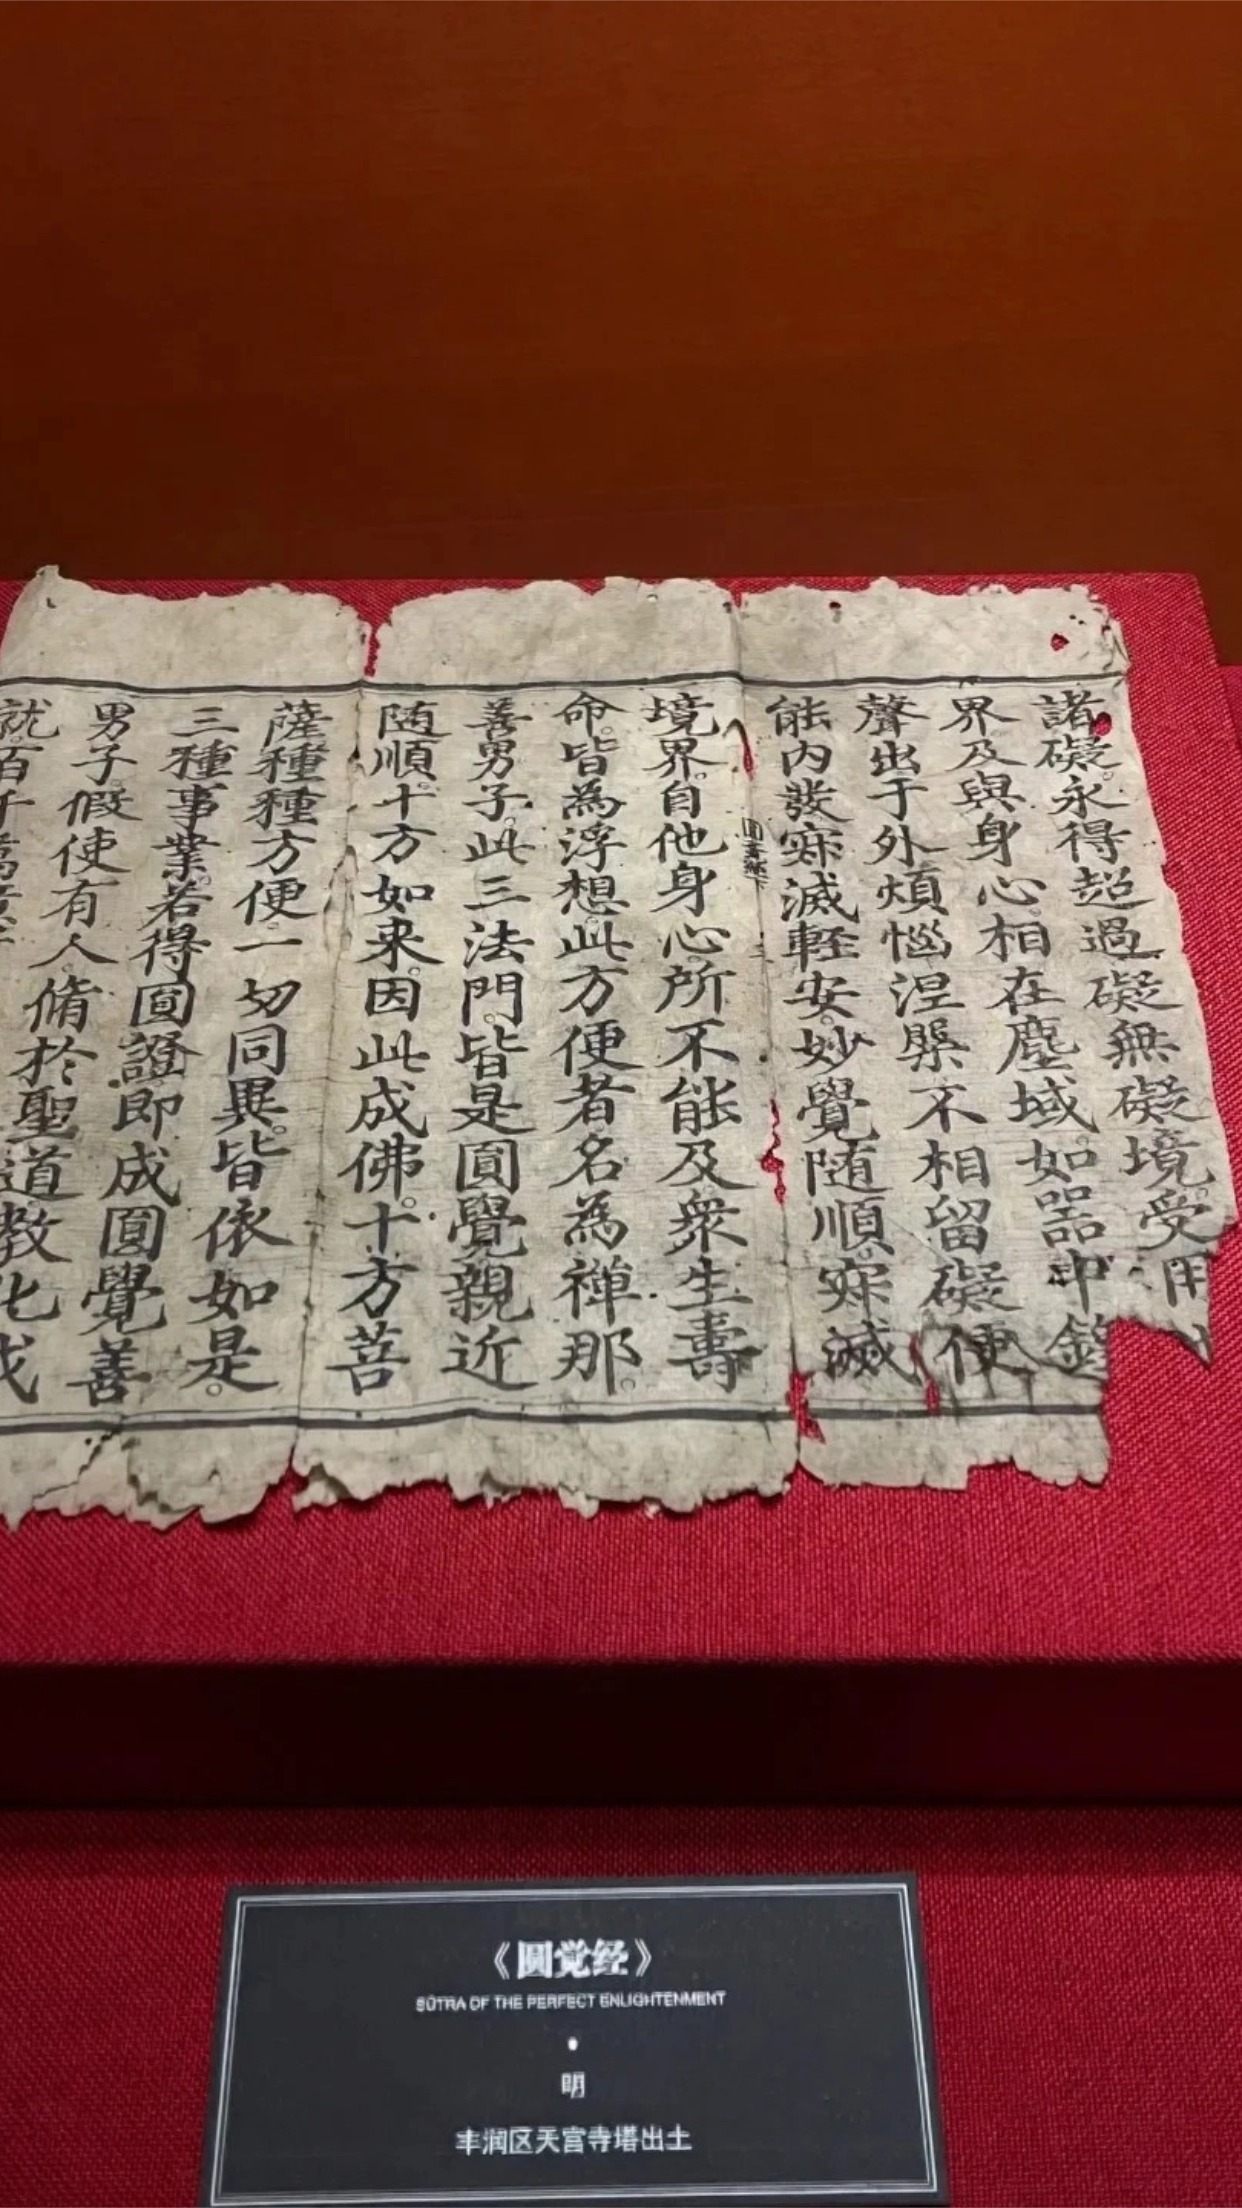 諸礙永得超過礙無礙境受用
界及與身心相在塵域如器中鍠
聲出于外煩惱涅槃不相留礙便
能内發寂滅輕安妙覺随順寂滅
境界自他身心所不能及衆生壽
命皆為浮想此方便者名為禪那
善男子此三法門皆是圓覺親近
随順十方如来因此成佛十方菩
薩種種方便一切同異皆依如是
三種事業若得圓證即成圓覺善
男子假使有人脩於聖道教化成
就百千萬億
《圆觉经》
SŪTRA OF THE PERFECT ENLIGHTENMENT
明
丰润区天宫寺塔出土